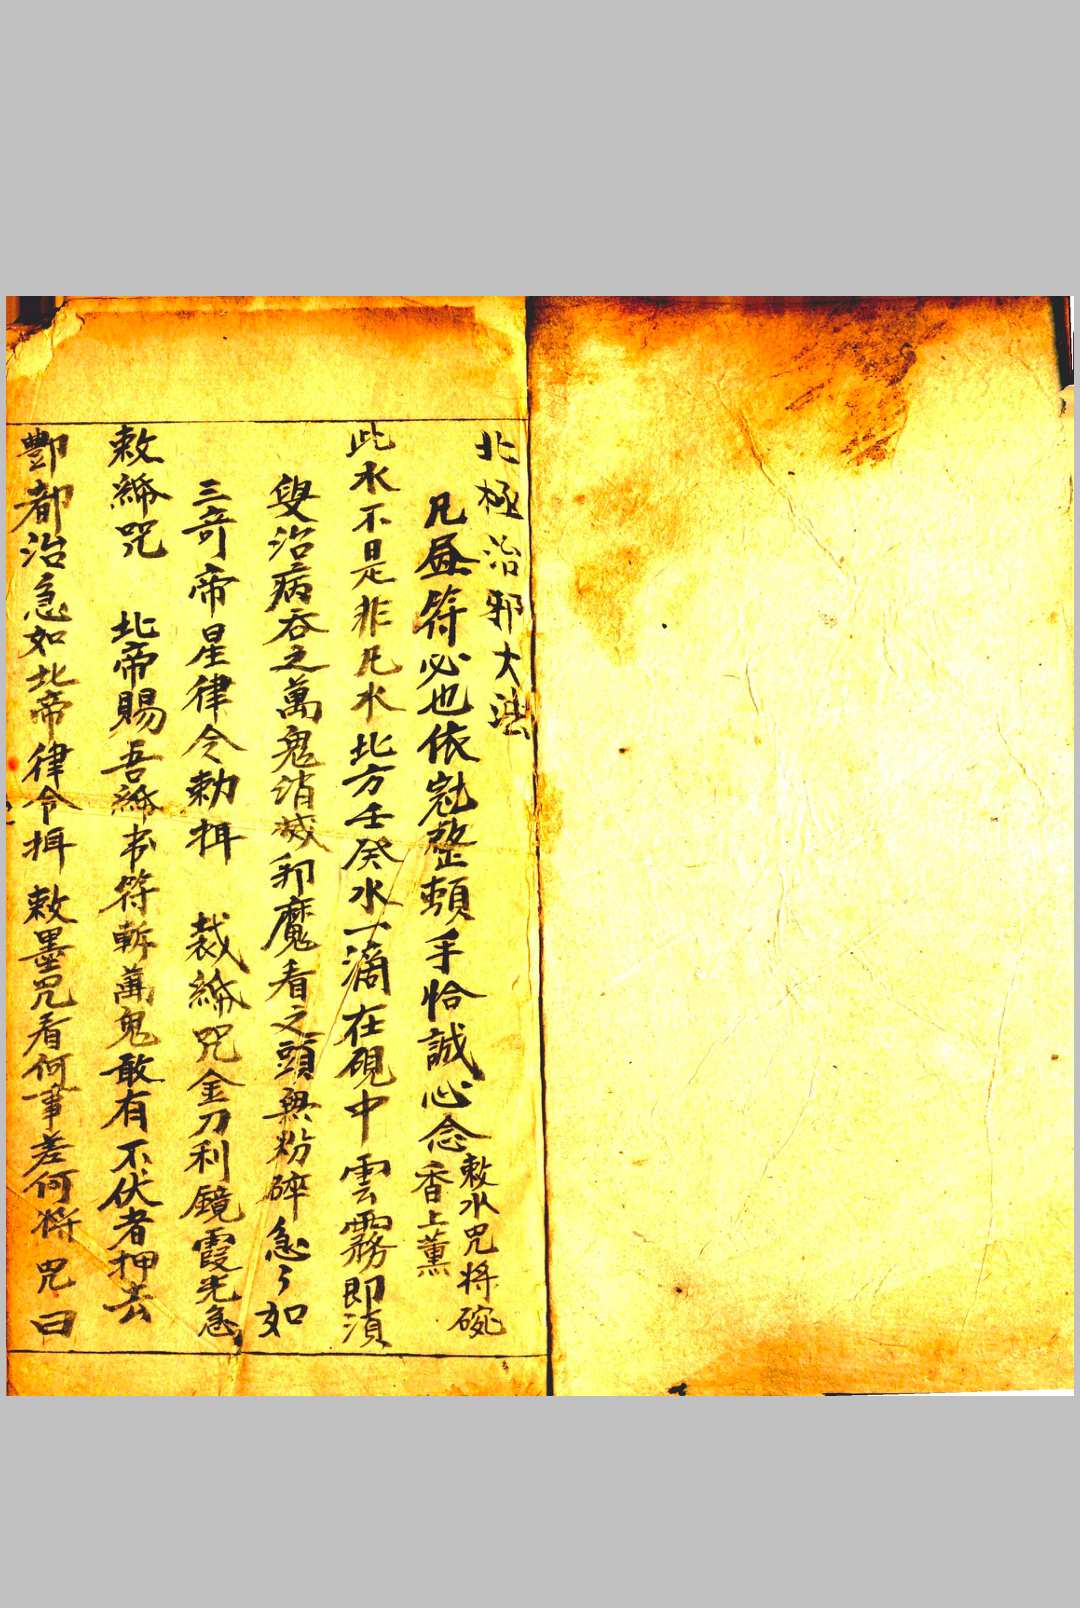 北極治邪大法
凡昼符必也依冠整頓手恰誠心念敕水咒將碗香上薰
此水不是非凡水北方壬癸水一滴在硯中雲霧即湏
叟治病吞之萬鬼消滅邪魔看之頭無粉碎急々如
三奇帝星律令勅 裁紙咒金刀利鏡霞光急
敕紙咒 北帝賜吾紙書符斬萬鬼敢有不伏者押去
酆都治急如北帝律令 敕墨咒看何事差何將咒曰